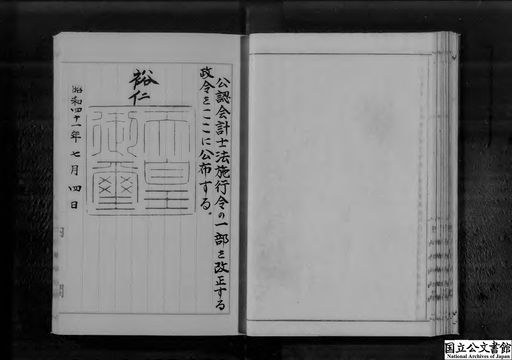 公認会計士法施行令の一部を改正する
政令をここに公布する。
裕仁
天皇
御璽
昭和四十一年七月四日
国立公文書館
National Archives of Japan